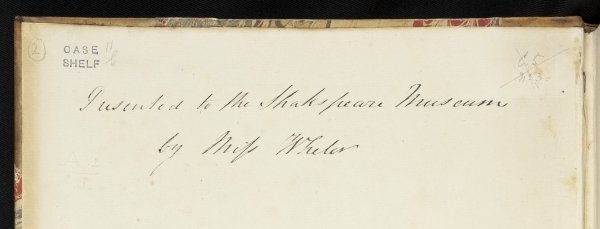 2
CASE
SHELF
Presented to the Shakspeare Museum
by Miss Wheler